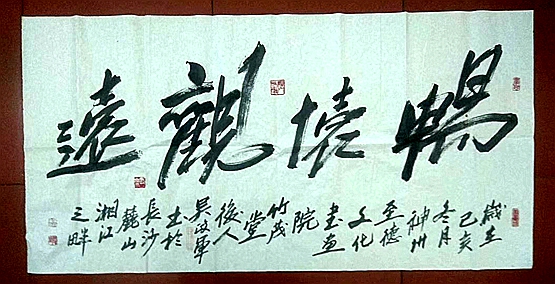 暢懷觀遠
歲在
己亥
冬月
神州
至德
文化
書画
院
竹茂
堂
後人
吴政軍
士於
長沙
麓山
湘江
之畔